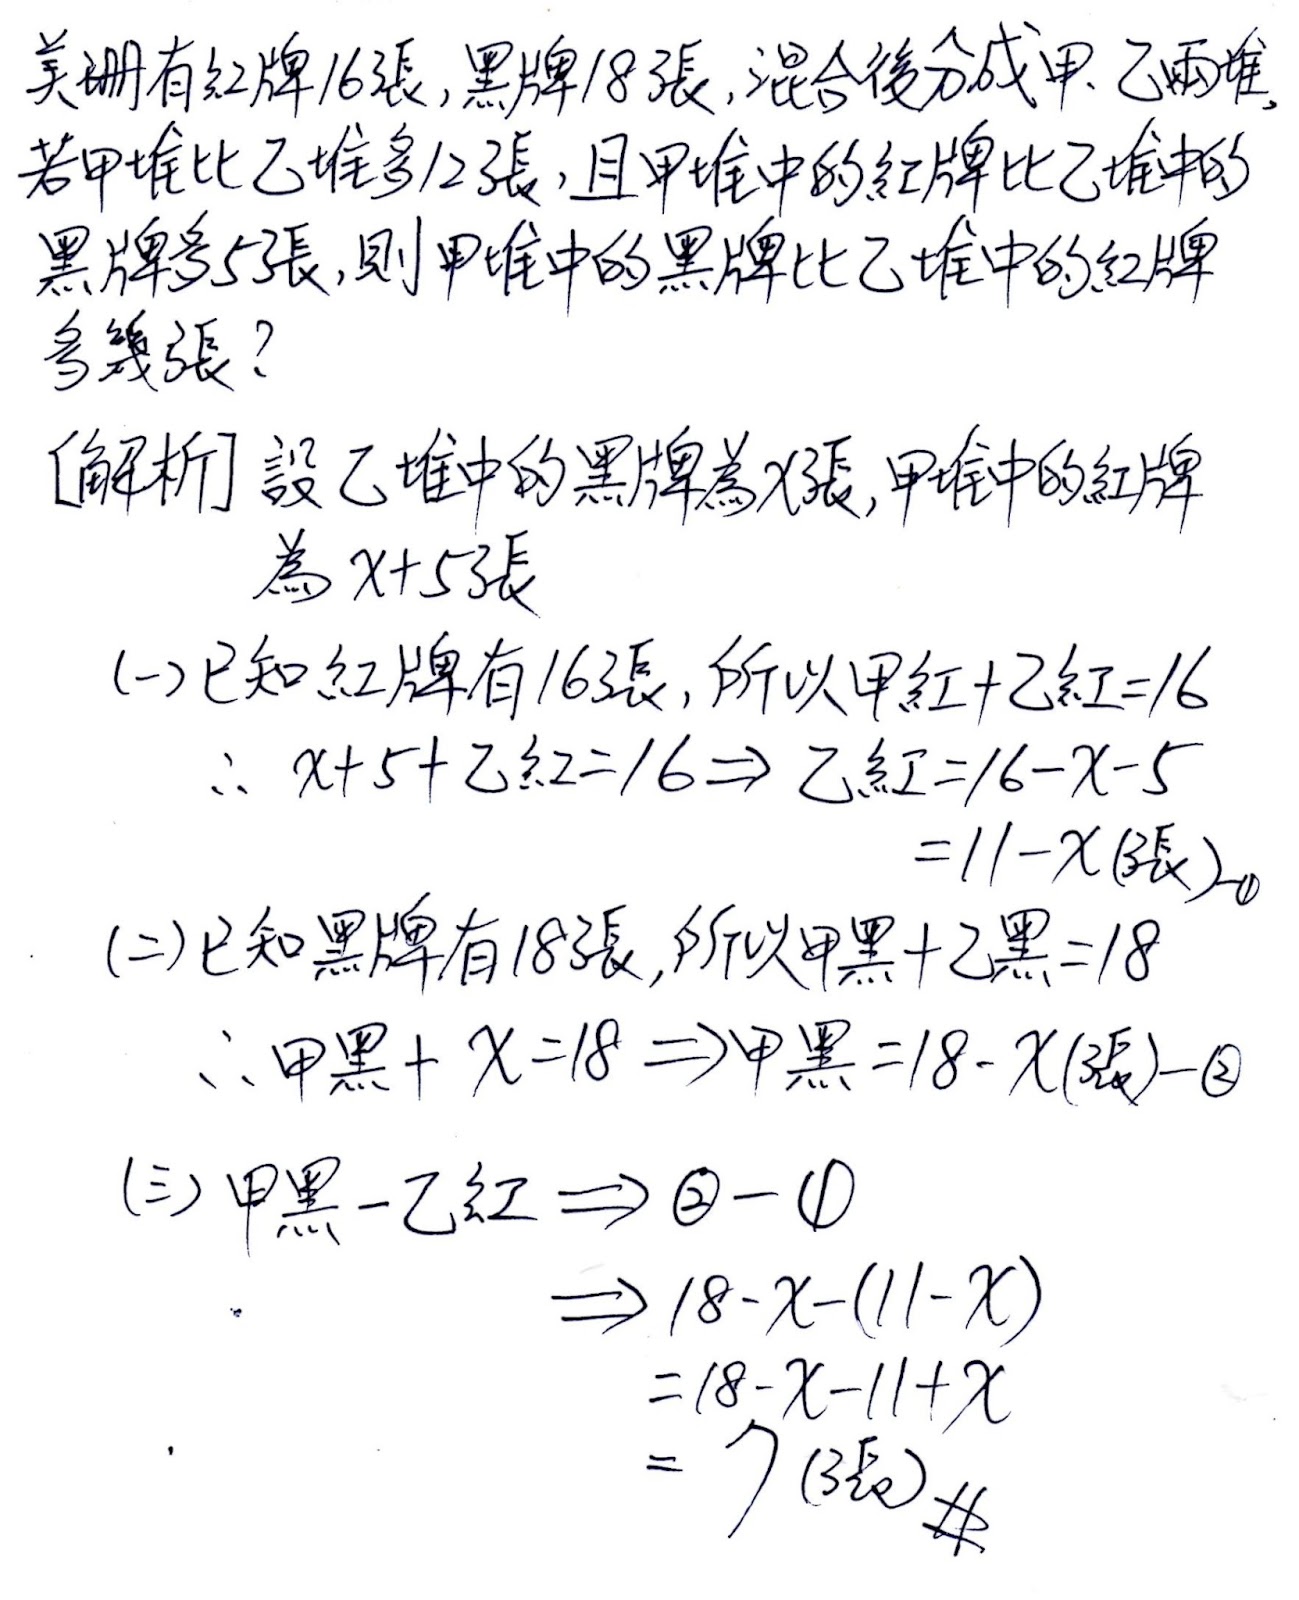 美珊有紅牌16張,黑牌18張,混合後分成甲、乙兩堆,
若甲堆比乙堆多12張,且甲堆中的紅牌比乙堆中的
黑牌多5張,則甲堆中的黑牌比乙堆中的紅牌
多幾張?
[解析] 設乙堆中的黑牌為x張,甲堆中的紅牌
為 x+5張
(一)已知紅牌有16張,所以甲紅+乙紅=16
∴ x+5+乙紅=16⇒ 乙紅=16-x-5
=11-x(張)-①
(二)已知黑牌有18張,所以甲黑+乙黑=18
∴甲黑+x=18⇒甲黑=18-x(張)-②
(三)甲黑-乙紅⇒②-①
⇒18-x-(11-x)
=18-x-11+x
=7(張)#